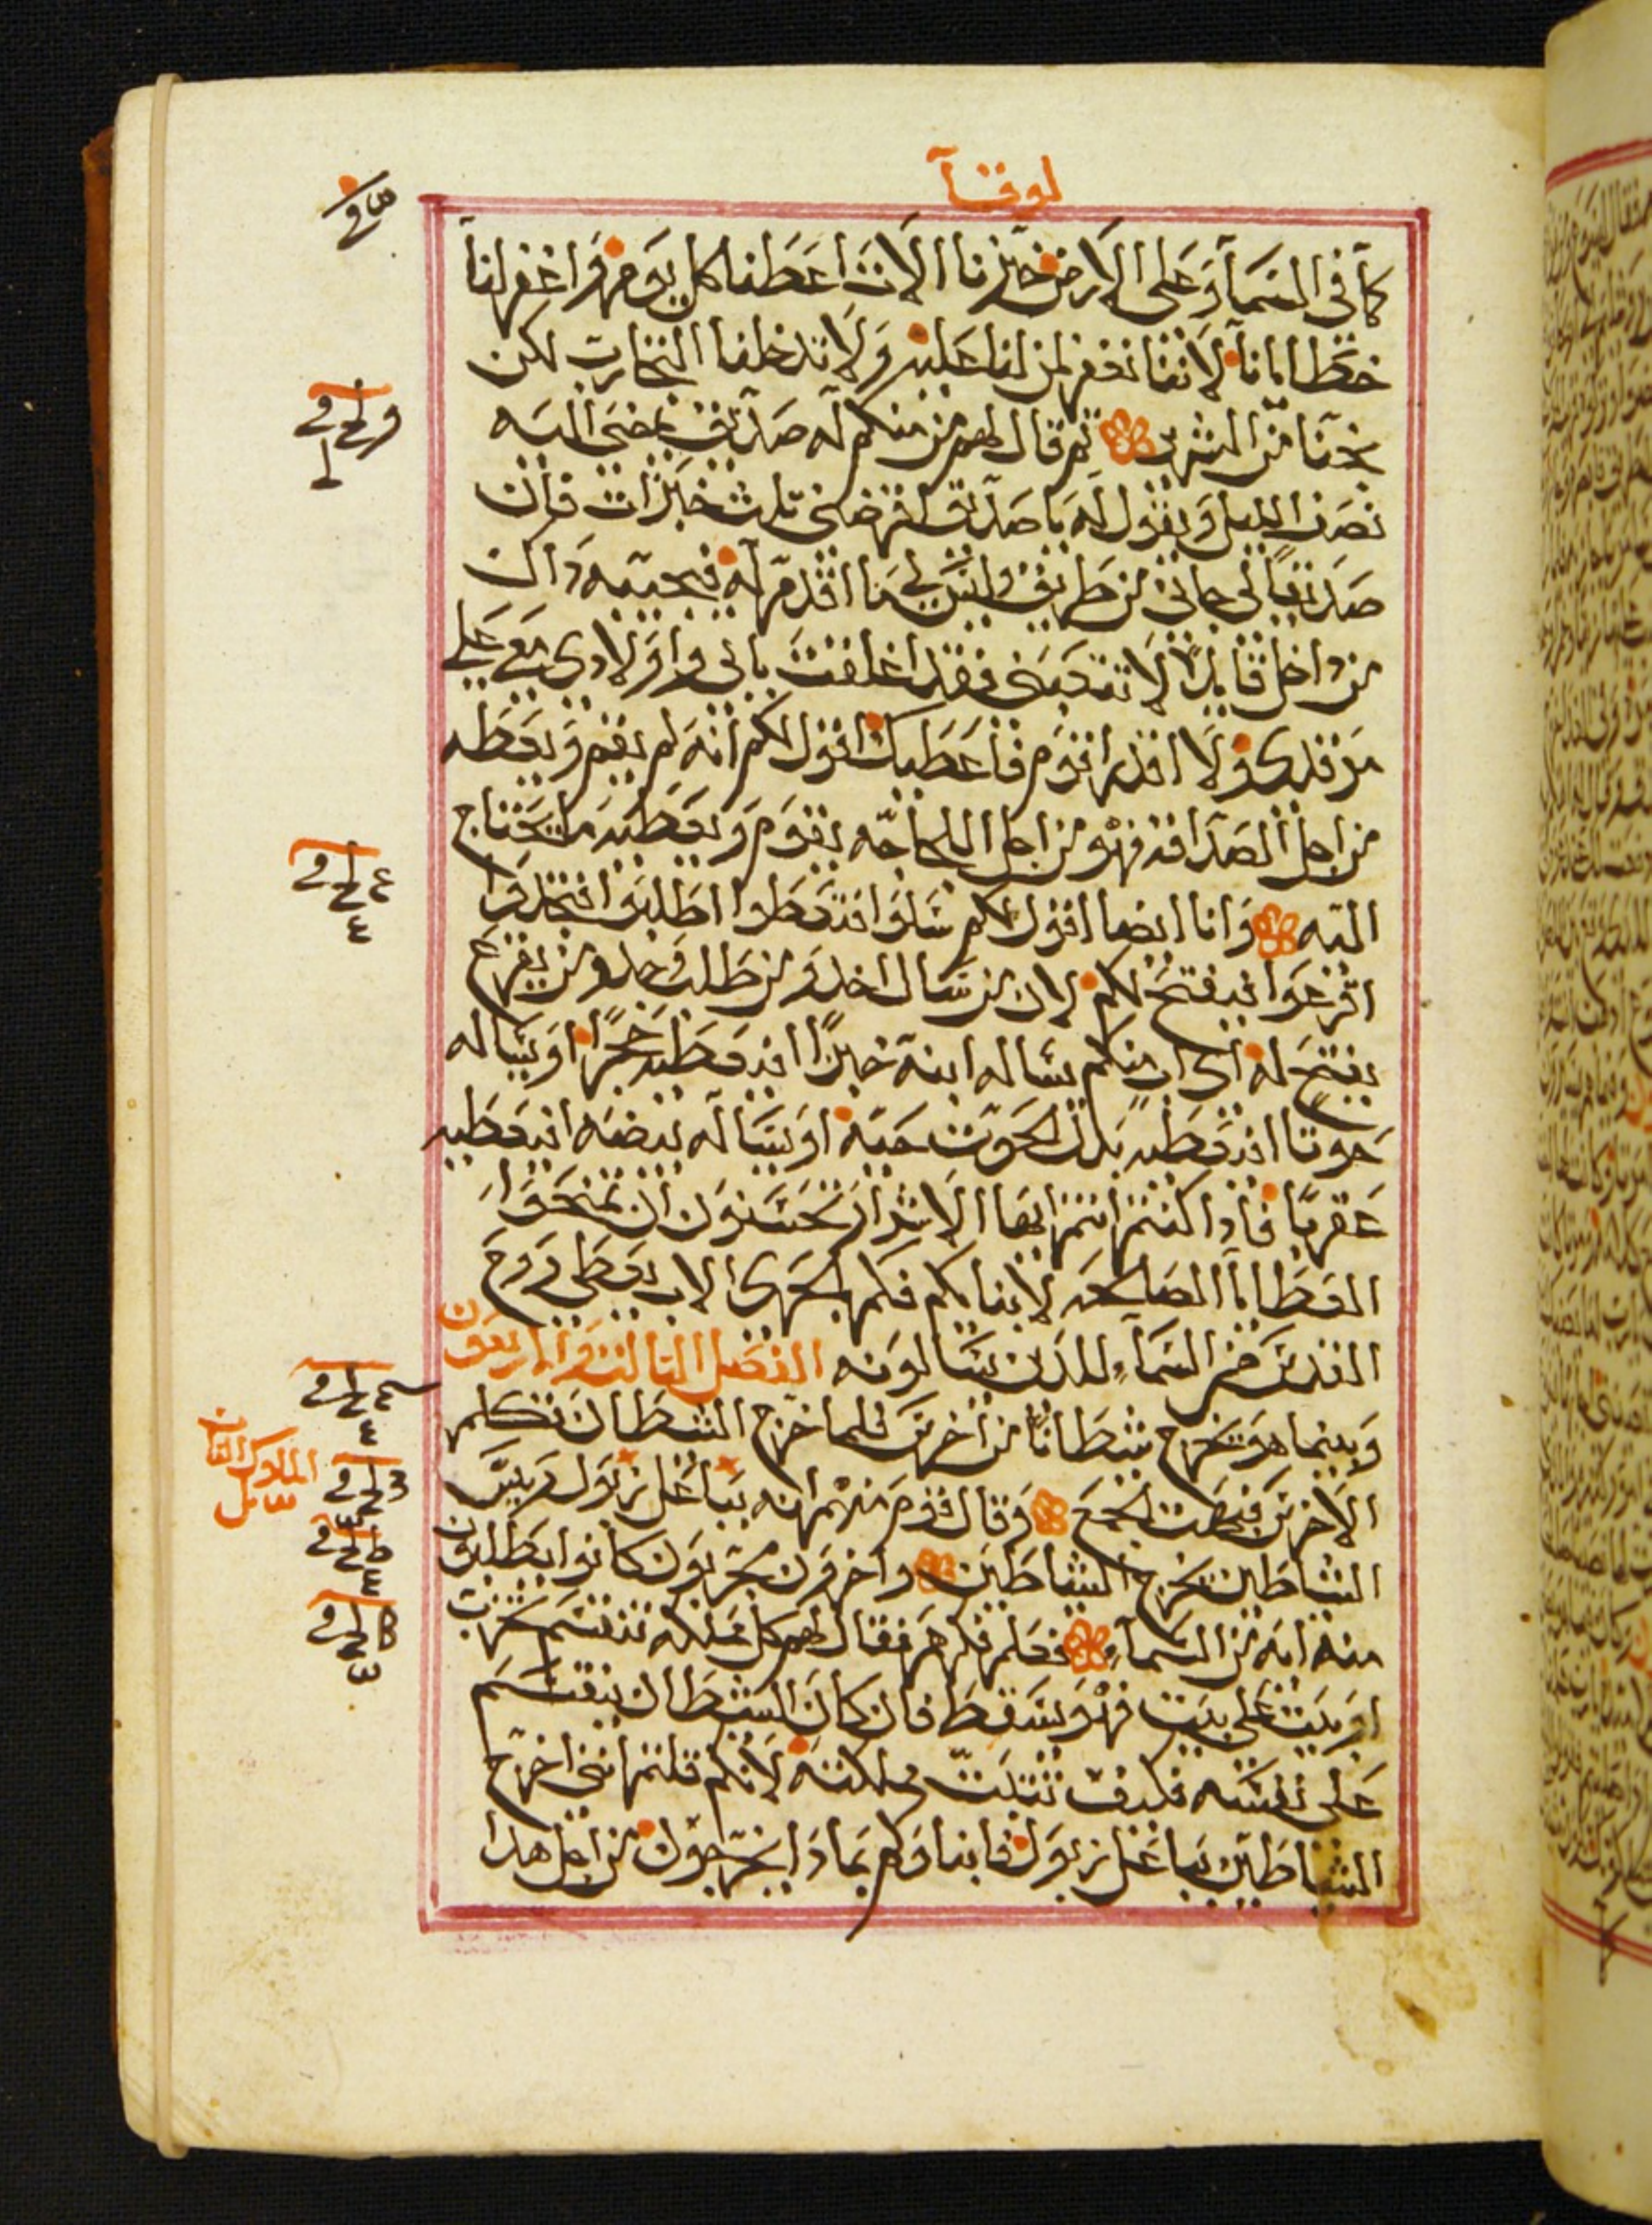 لوقا
كما في السمآ وعلى الارض خبزنا الات اعطنا كل يوم واغفر لنا
خطايانا لاننا نغفر لمن لنا عليه ولا تدخلنا التجارب لكن
نجنا من الشرير ثم قال لهم من منكم له صديق يمضي اليه
نصف الليل ويقول له يا صديق اقرضني ثلث خبزات فان
صديقا لي جاني من طريق وليس لي ما اقدم له فيجيبه ذاك
من داخل قايلا لا تتعبني فقد اغلقت بابي واولادي معي علي
مرقدي ولا اقدر اقوم فاعطيك اقول لكم انه لم يقم ويعطه
من اجل الصداقه فهو من اجل اللجاجه يقوم ويعطيه ما يحتاج
اليه وانا ايضا اقول لكم سلوا فتعطوا اطلبوا فتجدوا
اقرعوا فيفتح لكم لان من سال اخد ومن طلب وجد ومن يقرع
يفتح له اي اب منكم يساله ابنه خبزا افيعطيه حجرا او يساله
حوتا افيعطيه بدل الحوت حيه او يساله بيضه افيعطيه
عقربا فاذا كنتم انتم ايها الاشرار تحسنون ان تمنحوا
العطايا الصالحه لابنايكم فكم بالحري الاب يعطي روح
القدس من السمآ للذين يسالونه الفصل الثالث والاربعون
وبينما هو يخرج شيطانا من اخرس فلما خرج الشيطان تكلم
الاخرس فبهت الجمع وقال قوم منهم انه بباعلزبول رييس
الشياطين يخرج الشياطين واخرون يجربون كانوا يطلبون
منه ايه من السمآ فعلم فكرهم فقال لهم كل مملكه تنقسم تخرب
او بيت على بيت فهو يسقط فان كان الشيطان ينقسم
على نفسه فكيف تثبت مملكته لانكم قلتم انني اخرج
الشياطين بباعلزبول فابناوكم بماذا يخرجون من اجل هدا